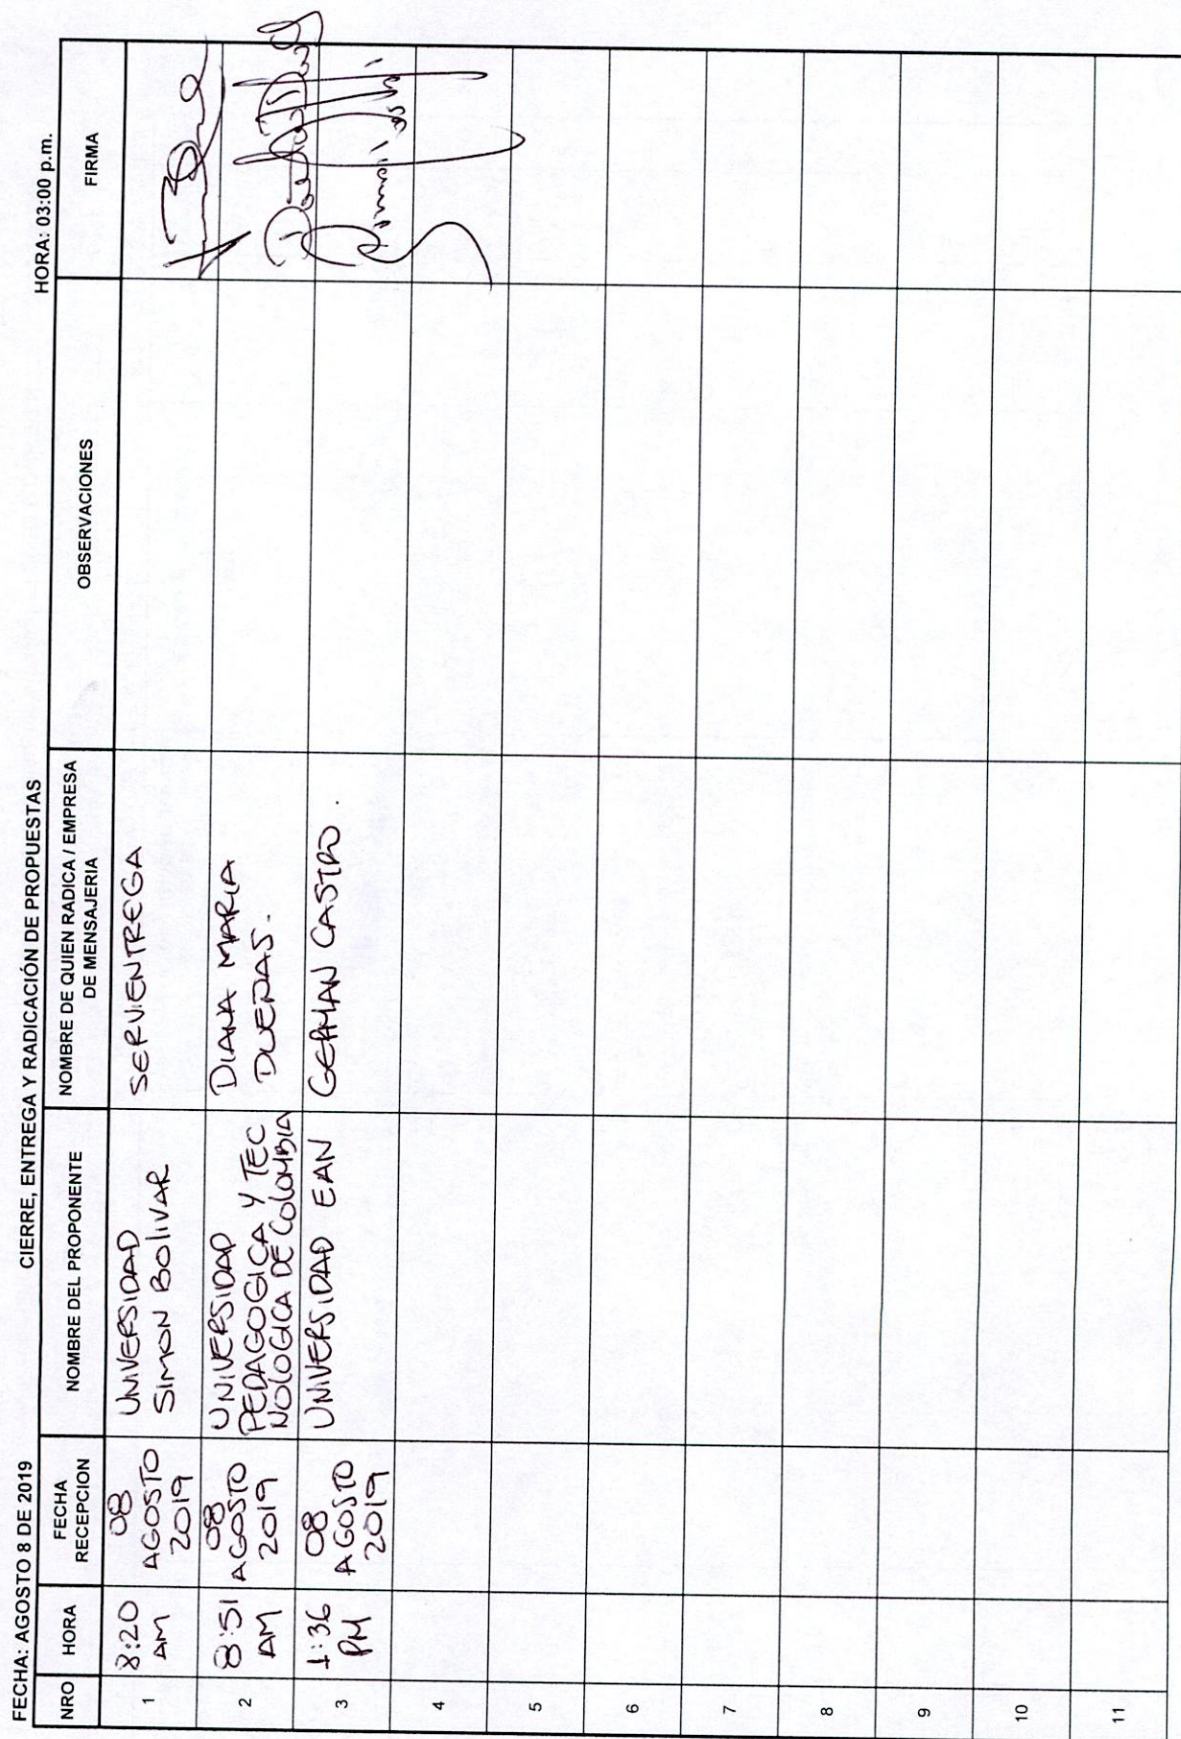 FECHA: AGOSTO 8 DE 2019 CIERRE, ENTREGA Y RADICACIÓN DE PROPUESTAS HORA: 03:00 p.m.
NRO
HORA
FECHA
RECEPCION
NOMBRE DEL PROPONENTE
NOMBRE DE QUIEN RADICA / EMPRESA
DE MENSAJERIA
OBSERVACIONES
FIRMA
1
8:20
AM
08
AGOSTO
2019
UNIVERSIDAD
SIMON BOLIVAR
SERVIENTREGA
2
8:51
AM
08
AGOSTO
2019
UNIVERSIDAD
PEDAGOGICA Y TEC
NOLOGICA DE COLOMBIA
DIANA MARIA
DUEÑAS.
3
1:36
PM
08
AGOSTO
2019
UNIVERSIDAD EAN
GERMAN CASTRO.
4
5
6
7
8
9
10
11